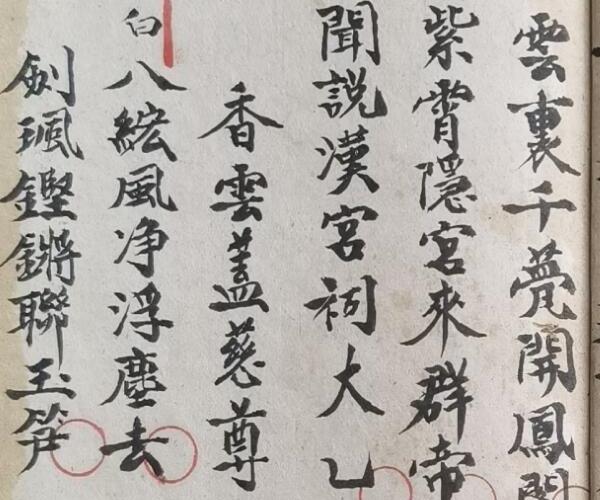 雲裏千甍開鳳
紫霄隱宮來群帝
聞説漢宮祠大乙
香雲蓋慈尊
白
八紘風净浮塵去
劍珮鏗鏘聯玉笋